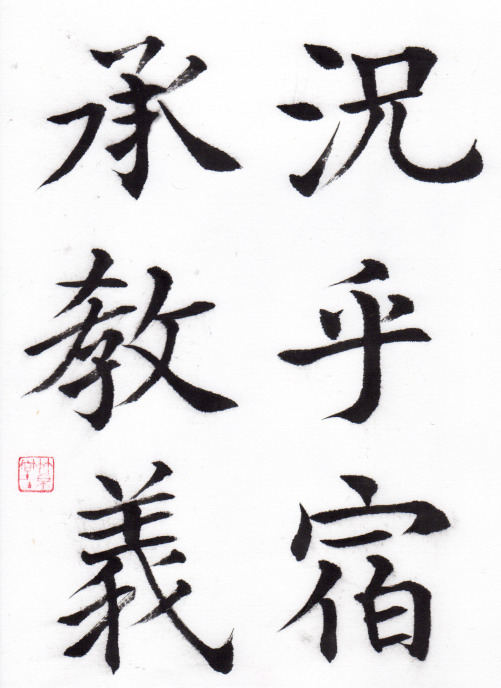 況乎宿
承教義